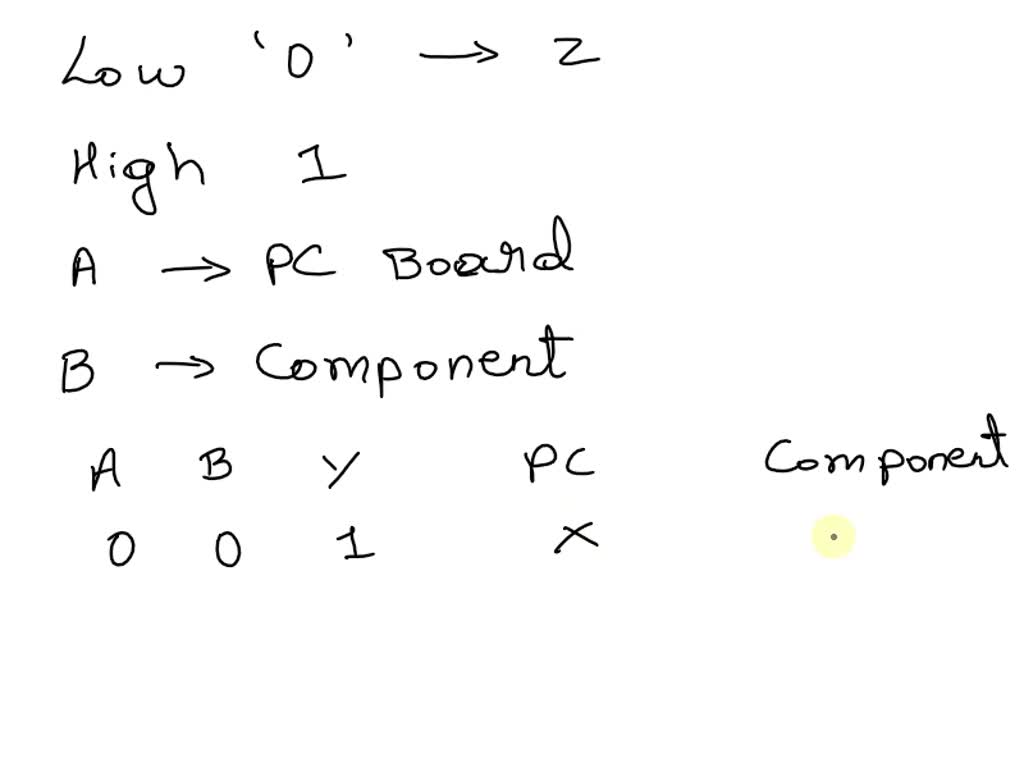 Low '0' → Z
High 1
A → PC Board
B → Component
A B Y PC Component
0 0 1 X